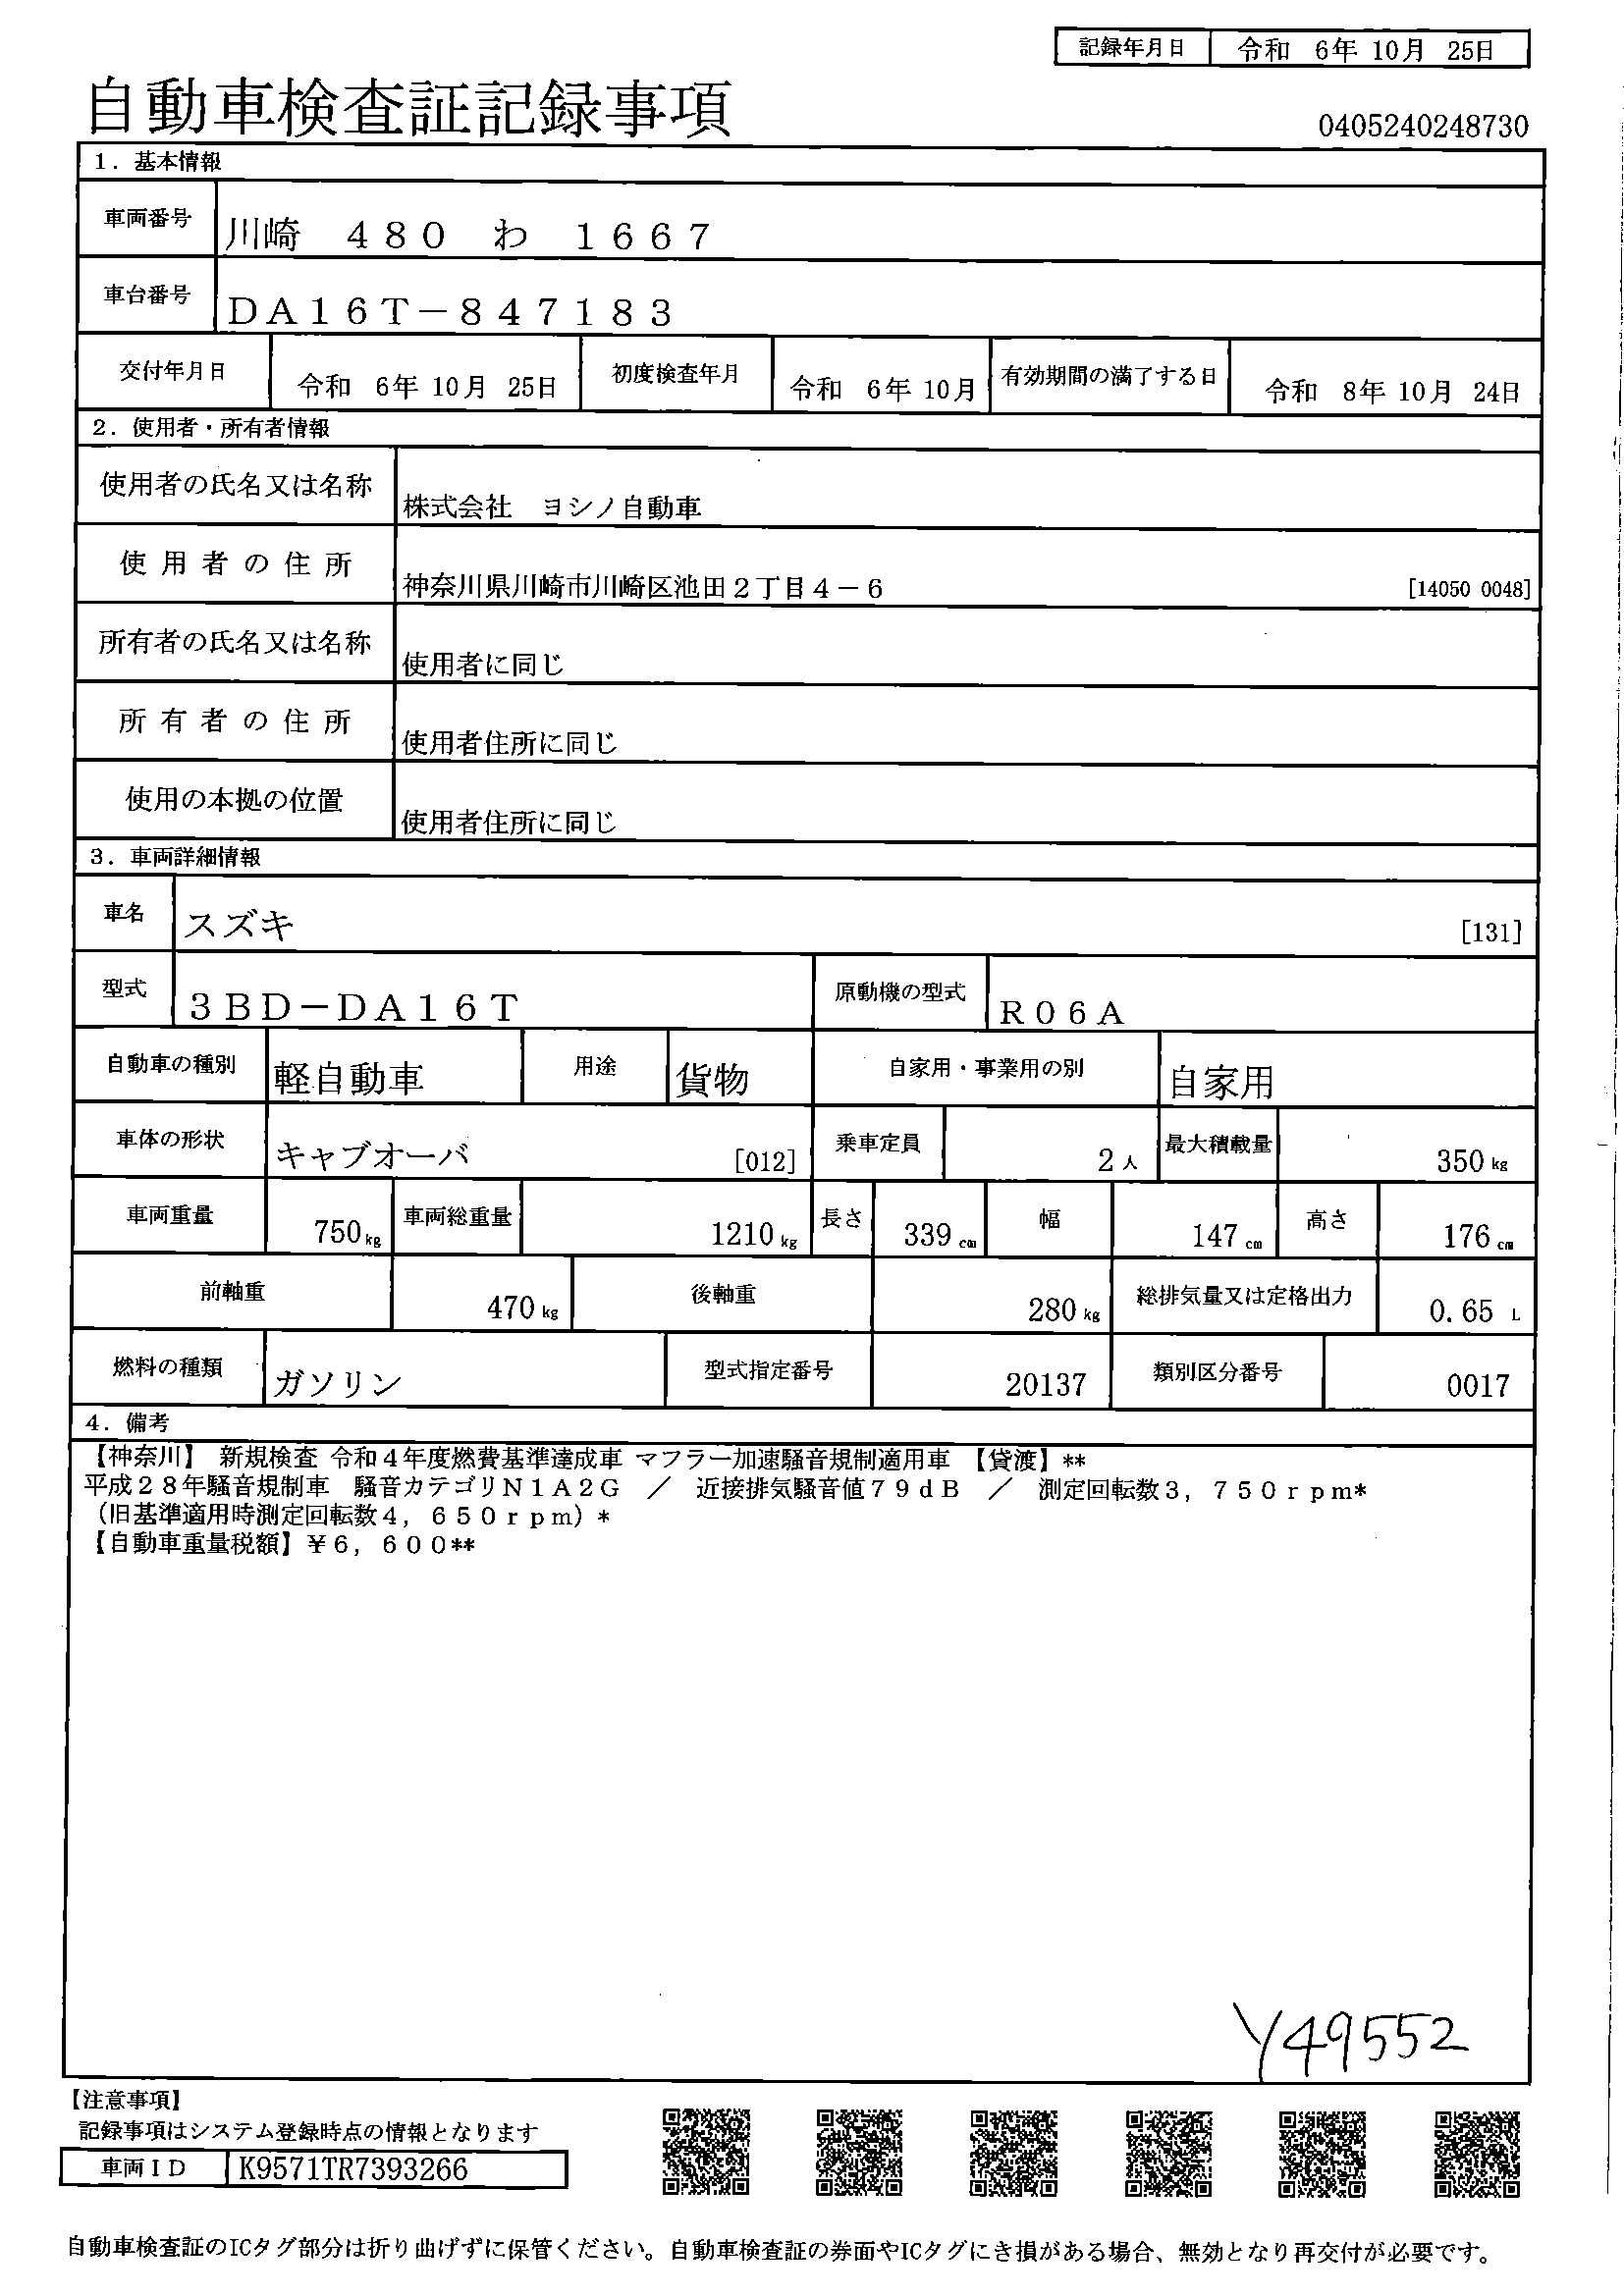 記録年月日 令和 6年 10月 25日
自動車検査証記録事項
0405240248730
1. 基本情報
車両番号 川崎 480 わ 1667
車台番号 DA16T-847183
交付年月日 令和 6年 10月 25日 初度検査年月 令和 6年 10月 有効期間の満了する日 令和 8年 10月 24日
2. 使用者・所有者情報
使用者の氏名又は名称 株式会社 ヨシノ自動車
使用者の住所 神奈川県川崎市川崎区池田2丁目4-6 [14050 0048]
所有者の氏名又は名称 使用者に同じ
所有者の住所 使用者住所に同じ
使用の本拠の位置 使用者住所に同じ
3. 車両詳細情報
車名 スズキ [131]
型式 3BD-DA16T 原動機の型式 R06A
自動車の種別 軽自動車 用途 貨物 自家用・事業用の別 自家用
車体の形状 キャブオーバ [012] 乗車定員 2人 最大積載量 350kg
車両重量 750kg 車両総重量 1210kg 長さ 339cm 幅 147cm 高さ 176cm
前軸重 470kg 後軸重 280kg 総排気量又は定格出力 0.65 L
燃料の種類 ガソリン 型式指定番号 20137 類別区分番号 0017
4. 備考
【神奈川】 新規検査 令和4年度燃費基準達成車 マフラー加速騒音規制適用車 【貸渡】**
平成28年騒音規制車 騒音カテゴリN1A2G / 近接排気騒音値79dB / 測定回転数3,750rpm*
(旧基準適用時測定回転数4,650rpm)*
【自動車重量税額】¥6,600**
Y49552
【注意事項】
記録事項はシステム登録時点の情報となります
車両ID K9571TR7393266
自動車検査証のICタグ部分は折り曲げずに保管ください。自動車検査証の券面やICタグにき損がある場合、無効となり再交付が必要です。